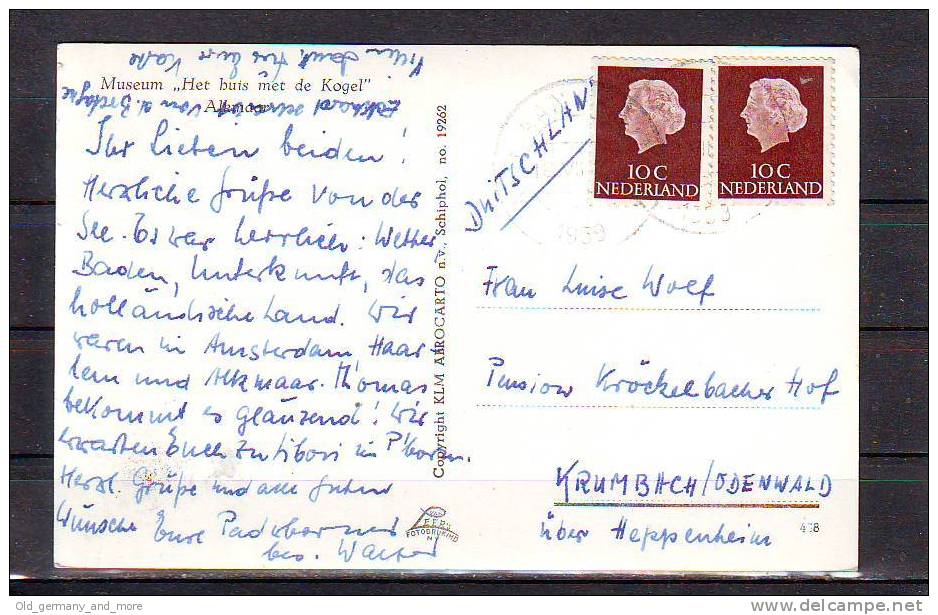 Mein
Karte
Museum „Het huis met de Kogel”
Alkmaar
Ihr Lieben beiden!
Herzliche Grüße von der
See. Es war herrlich: Wetter,
Baden, Unterkunft, das
holländische Land. Wir
waren in Amsterdam, Haar-
lem und Alkmaar. Thomas
bekommt es glänzend! Wir
erwarten Euch zu Libori in P'born.
Herzl. Grüße und alle guten
Wünsche Eure Paderborner
bes. Walter
Copyright KLM AEROCARTO n.v., Schiphol, no. 19262
DUITSCHLAND
10 C
NEDERLAND
10 C
NEDERLAND
1959
Frau Luise Wolf
Pension Kröckelbacher Hof
KRUMBACH/ODENWALD
über Heppenheim
FOTODRUK
NV
Old_germany_and_more
www.delcampe.net